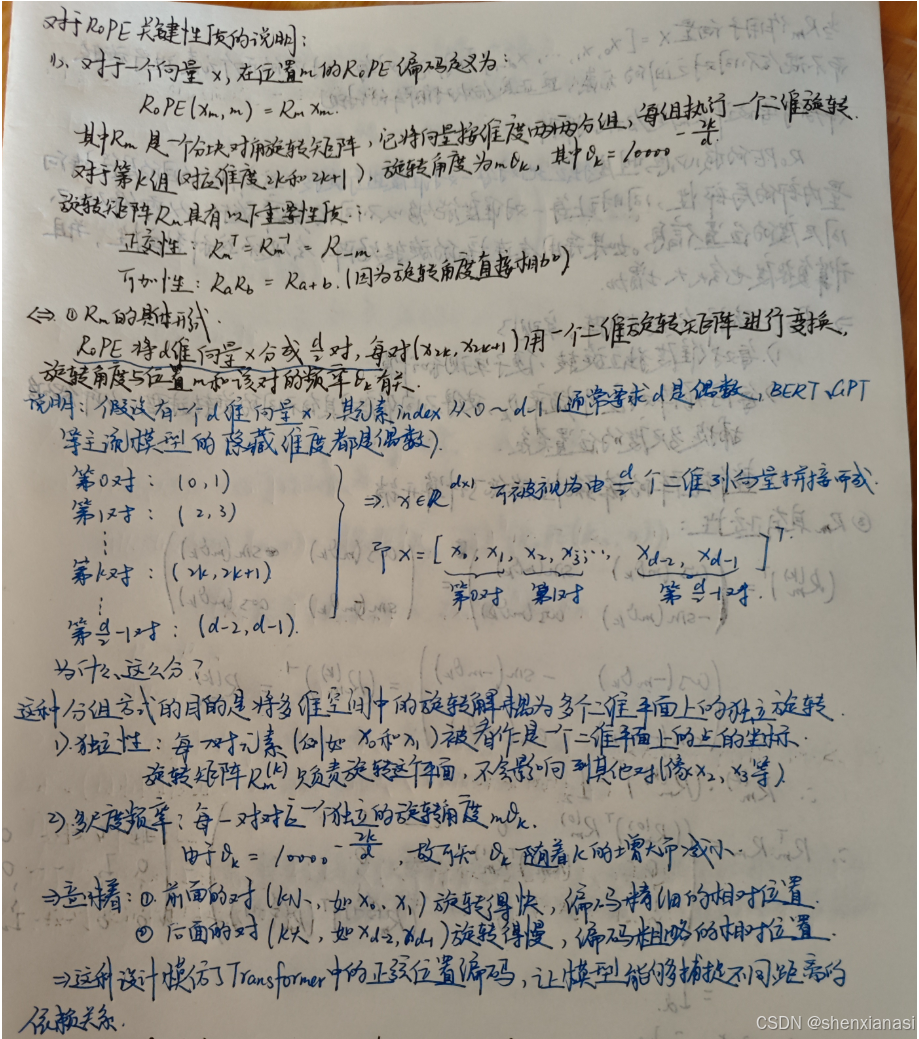 对于RoPE关键性质的说明:
(1). 对于一个向量 x, 在位置m的RoPE编码定义为:
RoPE(xm, m) = Rm xm.
其中Rm 是一个分块对角旋转矩阵, 它将向量按维度两两分组, 每组执行一个二维旋转.
对于第k组(对应维度2k和2k+1), 旋转角度为mθk, 其中θk = 10000^(-2k/d).
旋转矩阵Rm具有以下重要性质:
正交性: Rm^T = Rm^-1 = R-m.
可加性: RaRb = Ra+b. (因为旋转角度直接相加)
⇔ ① Rm的具体形式.
RoPE 将d维向量x分成 d/2 对, 每对(x2k, x2k+1)用一个二维旋转矩阵进行变换,
旋转角度与位置m和该对的频率θk有关.
说明: 假设有一个d维向量x, 其元素index从0~d-1 (通常要求d是偶数, BERT、GPT
等主流模型的隐藏维度都是偶数).
第0对: (0, 1)
第1对: (2, 3)
⋮
第k对: (2k, 2k+1)
⋮
第d/2-1对: (d-2, d-1).
⇒ x∈R^(d×1) 可被视为由 d/2 个二维列向量拼接而成.
即 x = [x0, x1, x2, x3, ..., xd-2, xd-1]^T.
第0对 第1对 第d/2-1对
为什么这么分?
这种分组方式的目的是将多维空间中的旋转解耦为多个二维平面上的独立旋转.
1) 独立性: 每一对元素(例如 x0和x1)被看作是一个二维平面上的点的坐标.
旋转矩阵Rm^(k)只负责旋转这个平面, 不会影响到其他对(像x2, x3等)
2) 多尺度频率: 每一对对应一个独立的旋转角度mθk.
由于θk = 10000^(-2k/d), 故可知 θk 随着k的增大而减小.
⇒意味着: ①. 前面的对 (k小, 如x0、x1) 旋转得快, 编码精细的相对位置.
② 后面的对 (k大, 如xd-2, xd-1) 旋转得慢, 编码粗略的相对位置.
⇒这种设计模仿了Transformer中的正弦位置编码, 让模型能够捕捉不同距离的
依赖关系.
CSDN @shenxianasi